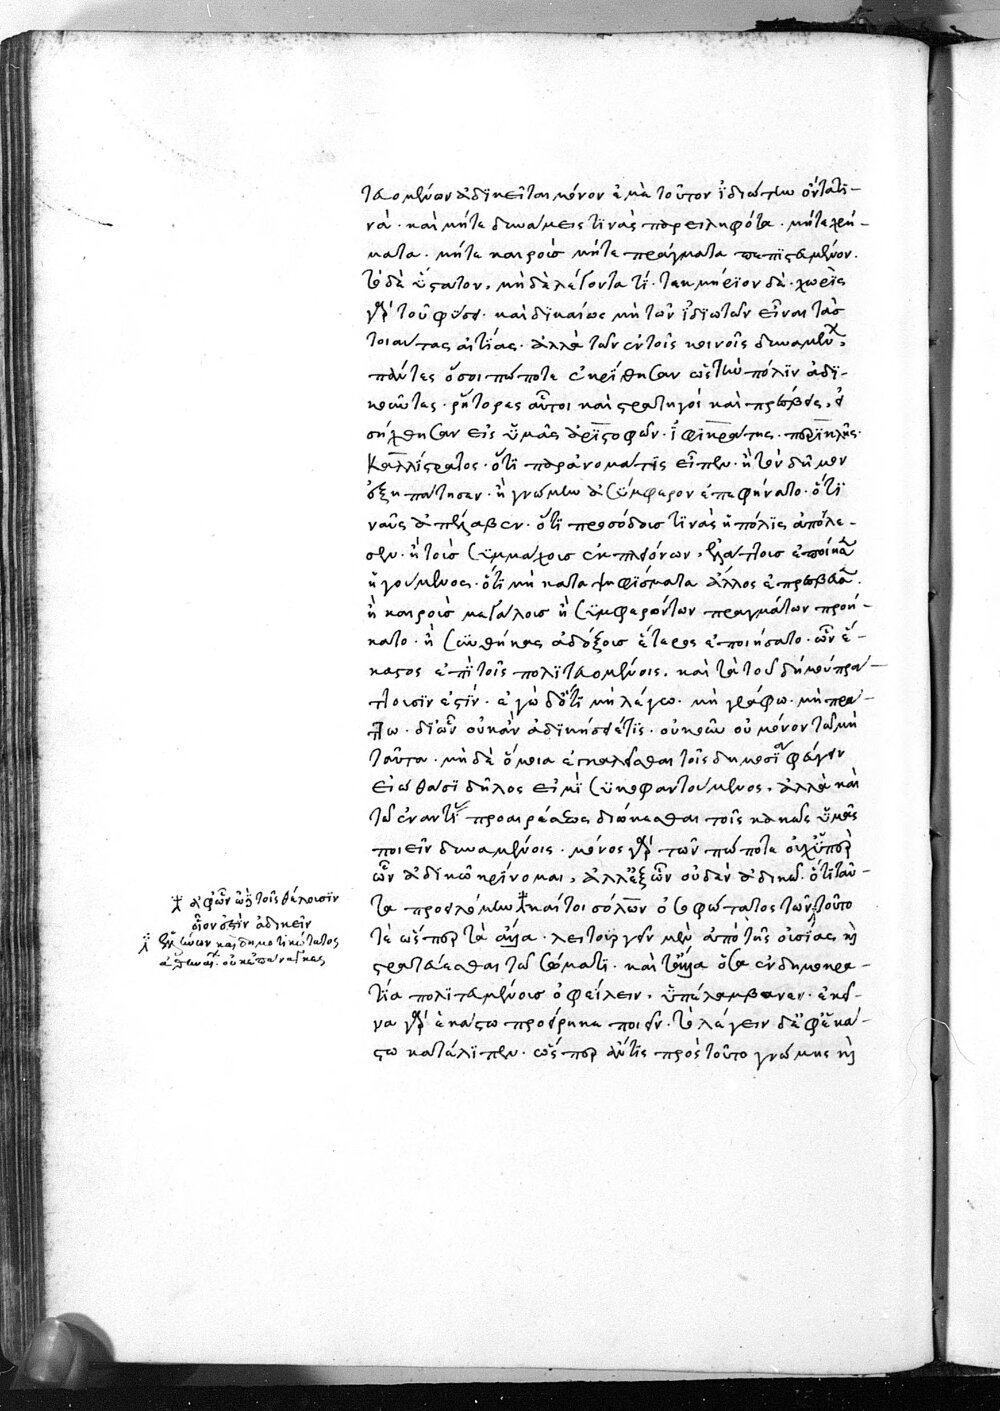 ταομένων ἀδικεῖται μόνον ἐμὲ τοῦτον ἰδιώτην ὄντα τι-
νὰ. καὶ μήτε δυνάμεις τινὰς παρειληφότα. μήτε χρή-
ματα. μήτε καιροὺς μήτε πράγματα πεπιστευμένον.
τὸ δὲ ὕστατον, μηδὲ λέγοντά τι. τεκμήριον δὲ. χωρὶς
γὰρ τοῦ φύσει καὶ δικαίως μὴ τῶν ἰδιωτῶν εἶναι τὰς
τοιαύτας αἰτίας. ἀλλὰ τῶν ἐν τοῖς κοινοῖς δυναμένων,
πάντες ὅσοι πώποτε ἐκρίθησαν ὡς τὴν πόλιν ἀδι-
κοῦντες. ῥήτορες αὗτοι καὶ στρατηγοὶ καὶ πρέσβεις, εἰ
σήχθησαν εἰς ὑμᾶς ἀριστοφῶν. ἰφικράτης. περικλῆς.
Καλλίστρατος. ὅτι παράνομά τις εἶπεν. ἢ τὸν δῆμον
ἐξηπάτησεν. ἢ γνώμην ἀσύμφορον ἐπεφήνατο. ὅτι
ναῦς ἀπέλαβεν. ὅτι προσόδους τινὰς ἡ πόλις ἀπόλε-
σεν. ἢ τοὺς συμμάχους ἐκ πλεόνων, ἐλάττους ἐποίησεν
ἡγούμενος. ὅτι μὴ κατα ψηφίσματα ἄλλος ἐπρέσβευσεν.
ἢ καιροὺς μεγάλους ἢ συμφερόντων πραγμάτων προή-
κατο. ἢ συνθήκας ἀδόξους ἕτερος ἐποιήσατο. ὧν ἕ-
καστος ἐπὶ τοῖς πολιτευομένοις. καὶ τὰ τοῦ δήμου πρά-
ττουσιν ἐστίν. ἐγὼ δ' ὅτι μὴ λέγω. μὴ γράφω. μὴ πρά-
ττω. δι' ὧν οὐκ ἂν ἀδικήσειέ τις. οὐκοῦν οὐ μόνον τῷ μὴ
ταῦτα. μηδὲ ὅμοια ἐγκαλεῖσθαι τοῖς δημοσίαν φεύγειν
εἰωθόσι δῆλος εἰμὶ συκοφαντούμενος, ἀλλὰ καὶ
τῷ ἐναντίᾳ προαιρέσεως διώκεσθαι τοῖς κακῶς ὑμᾶς
ποιεῖν δυναμένοις. μόνος γὰρ τῶν πώποτε οὐχ ὑπὲρ
ὧν ἀδικῶ κρίνομαι, ἀλλ' ἐξ ὧν οὐδὲν ἀδικῶ. ὅτι ταῦ-
τα προειλόμην καίτοι σόλων ὁ σοφώτατος τῶν τοῦτο
τὲ ὥσπερ τὰ ἄλλα. λειτουργεῖν μὲν ἀπὸ τῆς οὐσίας καὶ
στρατεύεσθαι τῷ σώματι. καὶ τἄλλα ὅσα ἐν δημοκρα-
τίᾳ πολιτευμένους ὀφείλειν. ὑπέλαμβανεν. ἐκεῖ-
να γὰρ ἑκάστῳ προσήκειν ποιεῖν. τὸ λέγειν δὲ ἐφ' ἑκά-
στῳ κατάλιπεν. ὥσπερ αὐτὸς πρὸς τοῦτο γνώμης καὶ
ἀφ' ὧν ὡς τοῖς θέλουσιν
οἷον ἐξὸν ἀδικεῖν
ἐξ ὧν καὶ δημοτικώτατος
οὐκ ἐπάναγκες